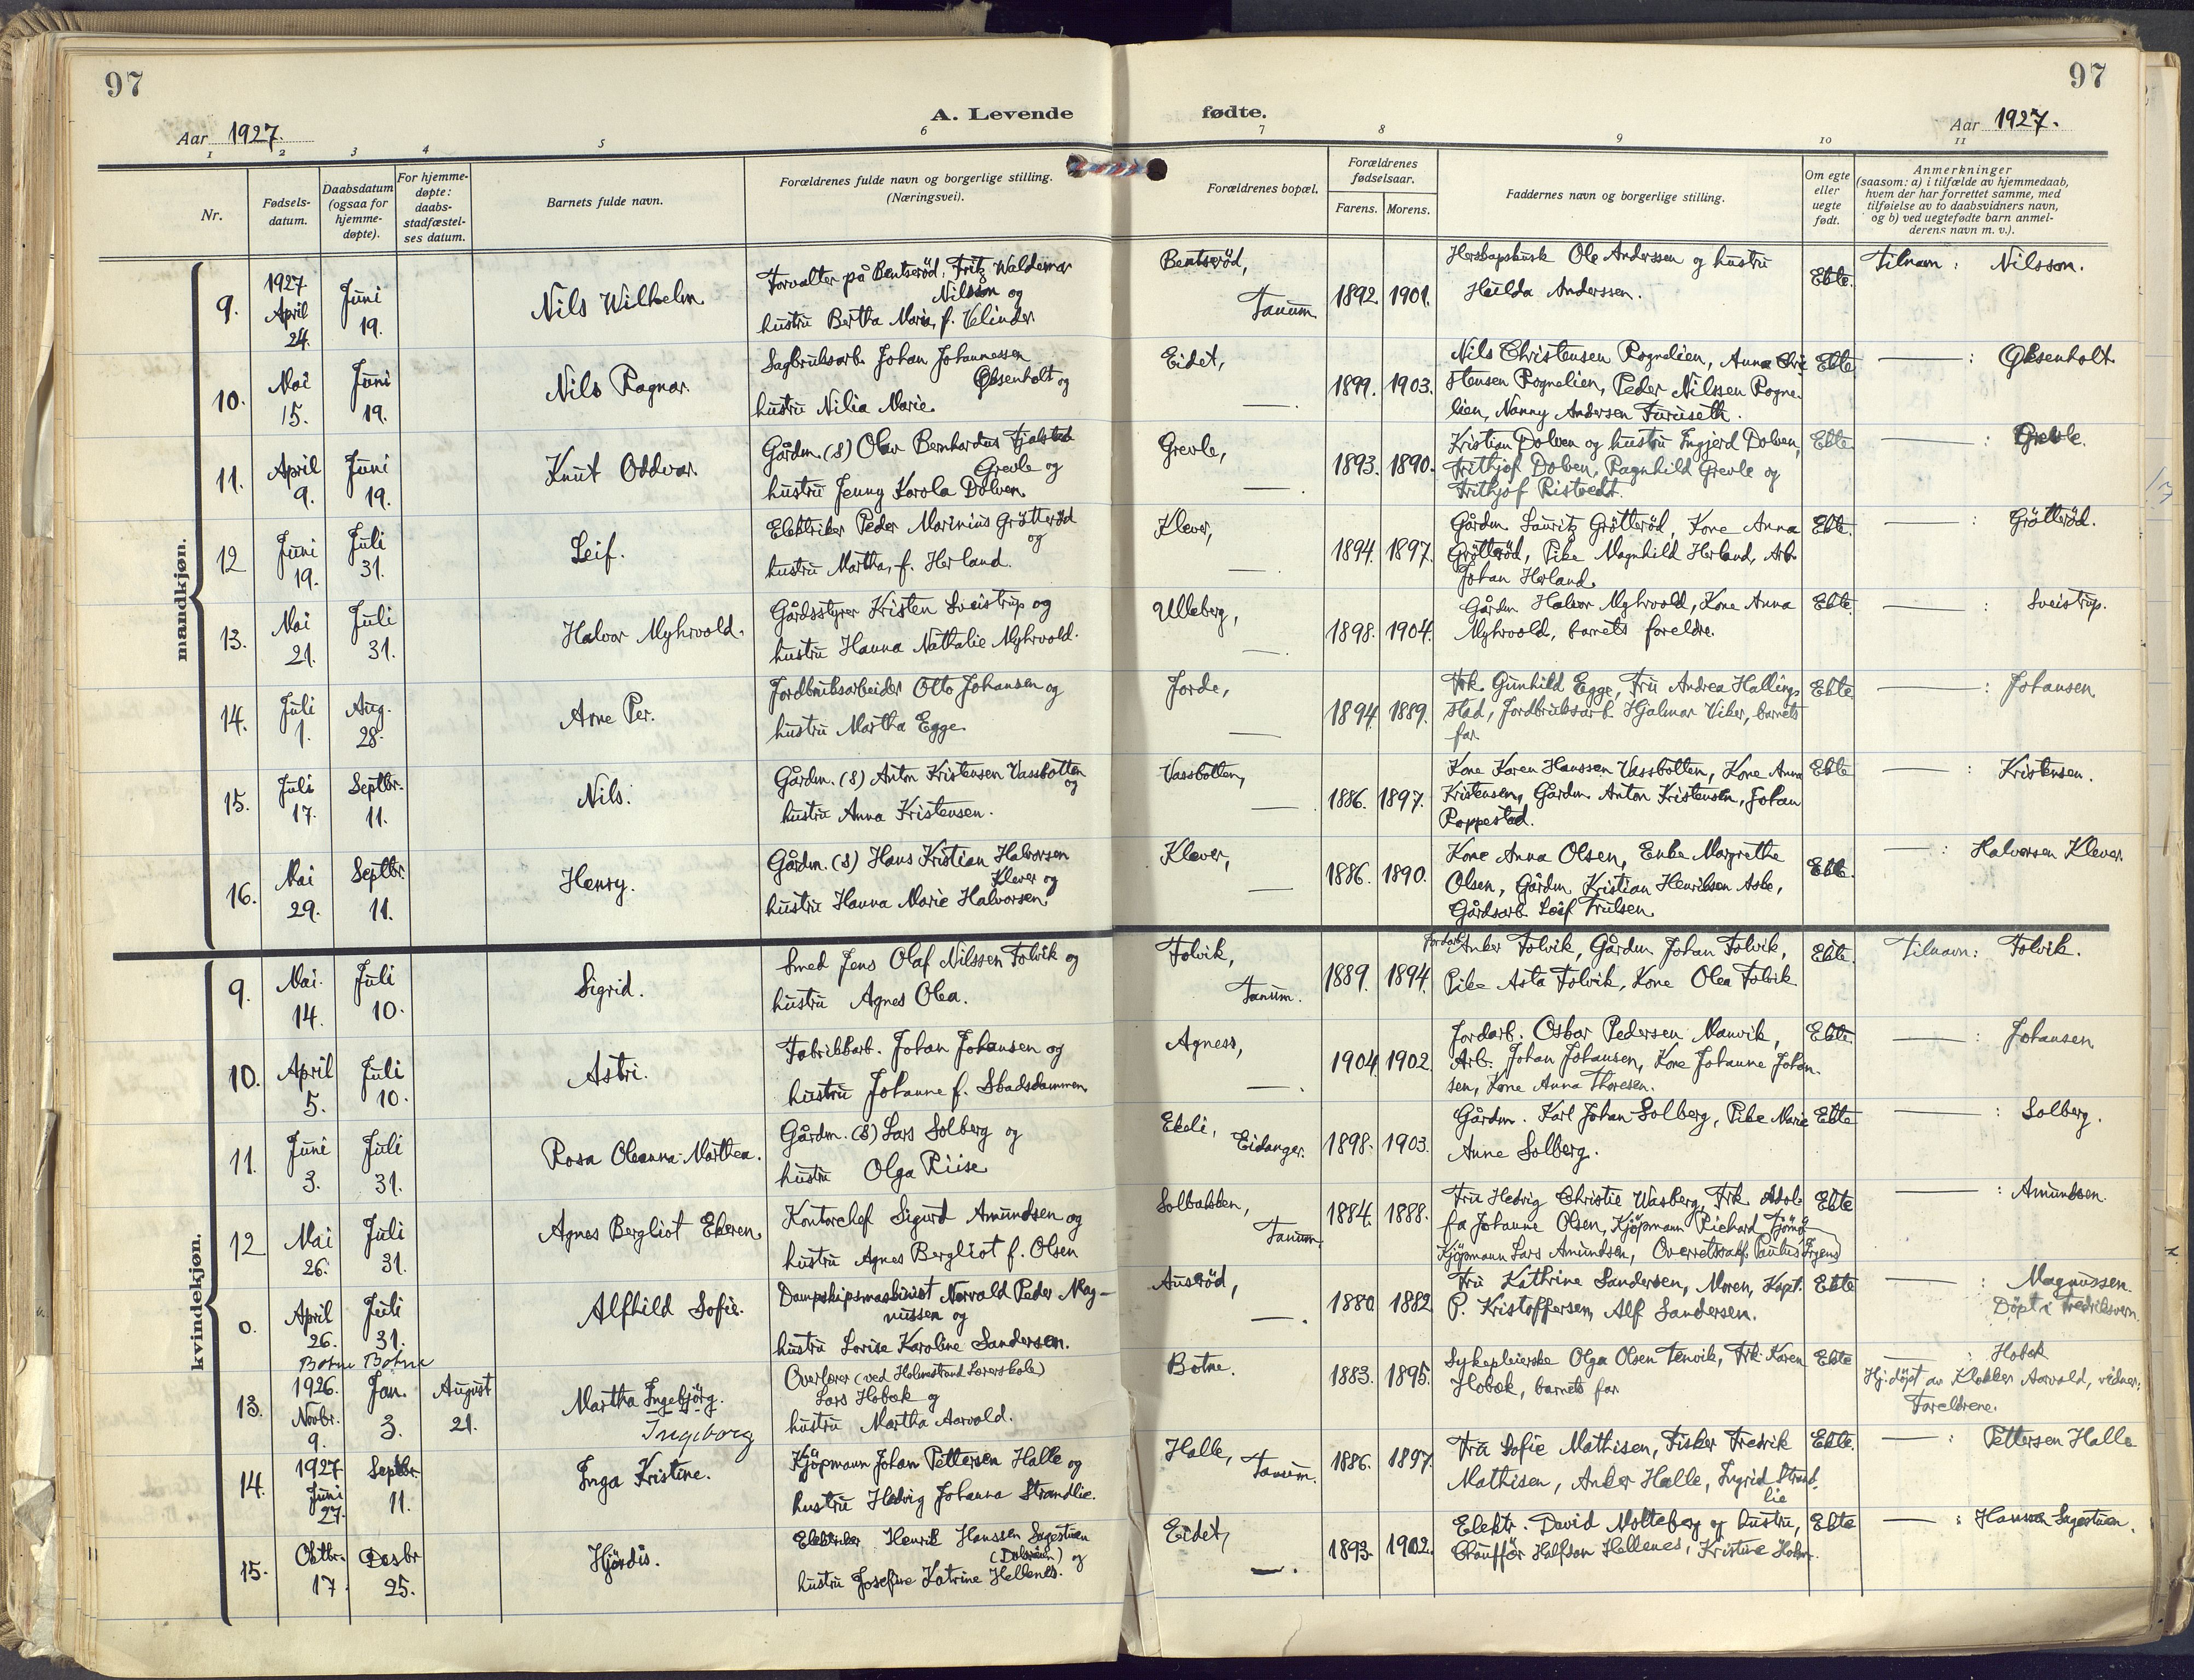 97
97
A. Levende fødte.
Aar 1927.
Aar 1927.
1 2 3 4 5 6 7 8 9 10 11
Nr.
Fødsels-
datum.
Daabsdatum
(ogsaa for
hjemme-
døpte).
For hjemme-
døpte:
daabs-
stadfæstel-
ses datum.
Barnets fulde navn.
Forældrenes fulde navn og borgerlige stilling.
(Næringsvei).
Forældrenes bopæl.
Forældrenes
fødselsaar.
Farens. Morens.
Faddernes navn og borgerlige stilling.
Om egte
eller
uegte
født.
Anmerkninger
(saasom: a) i tilfælde av hjemmedaab,
hvem der har forrettet samme, med
tilføielse av to daabsvidners navn,
og b) ved uegtefødte barn anmel-
derens navn m. v.).
mandkjøn.
9. 1927 April 24. Juni 19. Nils Wilhelm.
Forvalter på Bentseröd, Fritz Waldemar
Nilsson og
hustru Bertha Maria, f. Velinder
Bentseröd,
Tanum. 1892 1901.
Herskapskusk Ole Anderssen og hustru
Hulda Anderssen.
Ekte. Tilnavn: Nilsson.
10. Mai 15. Juni 19. Nils Ragnar.
Sagbruksarb. Johan Johannessen
Oksenholt og
hustru Nilia Marie.
Eidet, — 1899. 1903.
Nils Christensen Rognelien, Anna Chri
stensen Rognelien, Peder Nilssen Rogne-
lien, Nanny Andersen Furuseth.
Ekte — : Oksenholt.
11. April 9. Juni 19. Knut Oddvar.
Gårdm. (S) Olav Bernhardus Fjalsted
Grevle og
hustru Jenny Karola Dolven
Grevle, — 1893. 1890.
Kristian Dolven og hustru Ingjerd Dolven,
Frithjof Dolven, Ragnhild Grevle og
Frithjof Ristvedt.
Ekte — : Grevle.
12 Juni 19. Juli 31. Leif.
Elektriker Peder Marinius Grötteröd
og
hustru Martha, f. Herland.
Klever, — 1894. 1897.
Gårdm. Lauritz Grötteröd, Kone Anna
Grötteröd, Pike Magnhild Herland, Arb.
Johan Herland.
Ekte. — : Grötteröd.
13. Mai 21. Juli 31. Halvor Myhrvold.
Gårdsstyrer Kristen Sveistrup og
hustru Hanna Nathalie Myhrvold.
Ulleberg, — 1898. 1904.
Gårdm Halvor Myhrvold, Kone Anna
Myhrvold, barnets foreldre.
Ekte. — : Sveistrup.
14. Juli 1. Aug. 28. Arne Per.
Jordbruksarbeider Otto Johansen og
hustru Martha Egge.
Jorde, — 1894. 1889.
Frk. Gunhild Egge, Fru Andrea Hallings
stad, Jordbruksarb. Hjalmar Viker, barnets
far.
Ekte — : Johansen
15. Juli 17. Septbr. 11. Nils.
Gårdm. (S) Anton Kristensen Vassbotten
og
hustru Anna Kristensen.
Vassbotten, — 1886. 1897.
Kone Karen Hanssen Vassbotten, Kone Anna
Kristensen, Gårdm. Anton Kristensen, Johan
Roppestad.
Ekte — : Kristensen.
16. Mai 29. Septbr. 11. Henry.
Gårdm. (S) Hans Kristian Halvorsen
Klever og
hustru Hanna Marie Halvorsen.
Klever, — 1886. 1890.
Kone Anna Olsen, Enke Margrethe
Olsen, Gårdm. Kristian Henriksen Aske,
Gårdsarb. Leif Trulsen.
Ekte. — : Halvorsen Klever
kvindekjøn.
9. Mai. 14. Juli 10. Sigrid.
Smed Jens Olaf Nilssen Folvik og
hustru Agnes Olea.
Folvik,
Tanum. 1889. 1894.
Jordarb. Anker Folvik, Gårdm. Johan Folvik,
Pike Asta Folvik, Kone Olea Folvik
Ekte. Tilnavn: Folvik.
10. April 5. Juli 10. Astri.
Fabrikkarb. Johan Johansen og
hustru Johanne f. Skadsdammen.
Agness, — 1904. 1902.
Jordarb. Oskar Pedersen Manvik,
Arb. Johan Johansen, Kone Johanne Johan-
sen, Kone Anna Thoresen.
Ekte. — : Johansen
11. Juni 3. Juli 31. Rosa Oleanna Marthea.
Gårdm. (S) Lars Solberg og
hustru Olga Riise
Ekeli,
Eidanger. 1898. 1903.
Gårdm. Karl Johan Solberg, Pike Marie
Anne Solberg.
Ekte — : Solberg.
12 Mai 26. Juli 31. Agnes Bergliot Ekeren.
Kontorchef Sigurd Amundsen og
hustru Agnes Bergliot f. Olsen
Solbakken,
Tanum. 1884. 1888.
Fru Hedvig Christie Wasberg, Frk. Adol-
fa Johanne Olsen, Kjöpmann Richard Tjömö
Kjöpmann Lars Amundsen, Overretssakf. Paulus Irgens
Ekte — : Amundsen.
0. April 26. Juli 31. Alfhild Sofie.
Dampskipsmaskinist Norvald Peder Mag-
nussen og
hustru Lovise Karoline Sandersen.
Austöd, — 1880. 1882
Fru Kathrine Sandersen, Moren, Kapt.
P. Kristoffersen, Alf Sandersen.
Ekte — : Magnussen.
Döpt i Fredriksvern.
13. Botne 1926. Novbr. 9. Botne Jan. 3. August 21. Martha Ingebjörg.
Ingeborg
Overlærer (ved Holmestrand Lærerskole)
Lars Hobæk og
hustru Martha Aarvold.
Botne. 1883. 1895.
Sykepleierske Olga Olsen Tenvik, Frk. Karen
Hobæk, barnets far
Ekte — : Hobæk
Hj.döpt av Klokker Aarvold, vidner:
Foreldrene.
14. 1927 Juni 27. Septbr. 11. Inga Kristine.
Kjöpmann Johan Pettersen Halle og
hustru Hedvig Johanna Strandlie.
Halle,
Tanum. 1886. 1897.
Fru Sofie Mathisen, Fisker Fredrik
Mathisen, Anker Halle, Ingrid Strand-
lie
Ekte. — : Pettersen Halle
15. Oktbr. 17 Desbr 25. Hjördis.
Elektriker Henrik Hanssen Sagestuen
og
hustru Josefine Katrine Hellenes.
Eidet, — 1893. 1902.
Elektr. David Molteberg og hustru,
Chaufför Halfson Hellenes, Kristine Holm.
Ekte — : Hanssen Sagestuen.